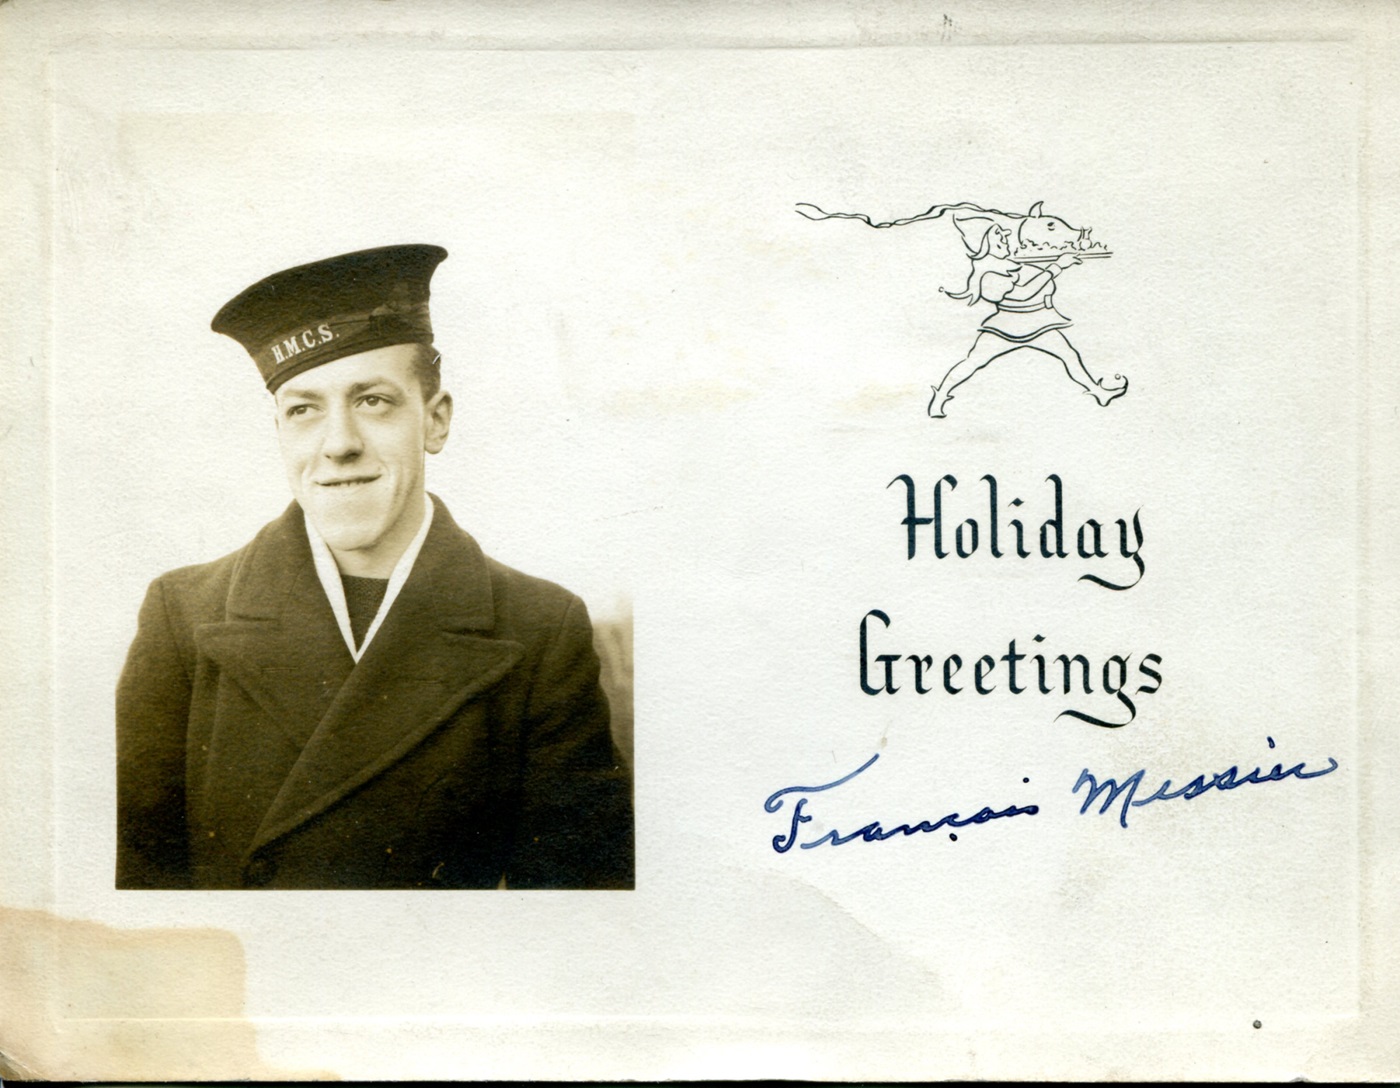 H.M.C.S.
Holiday
Greetings
François Messier